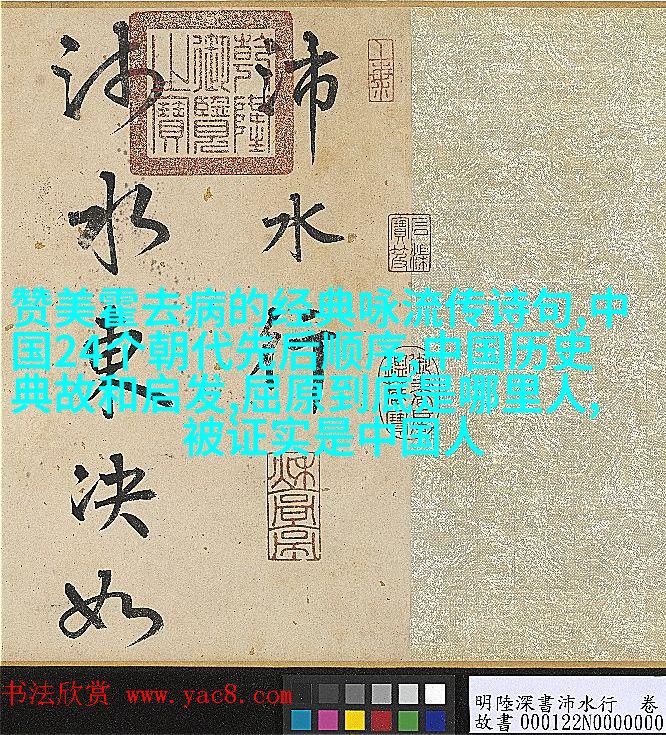 沛水行
沛水東決如
乾隆御覽之寶
赞美霍去病的经典咏流传诗句,中
国24个朝代先后顺序,中国历史
典故和启发,屈原到底是哪里人,
被证实是中国人
书法欣赏 www.yac8.com
明陸深書沛水行 卷
故書000122N0000000